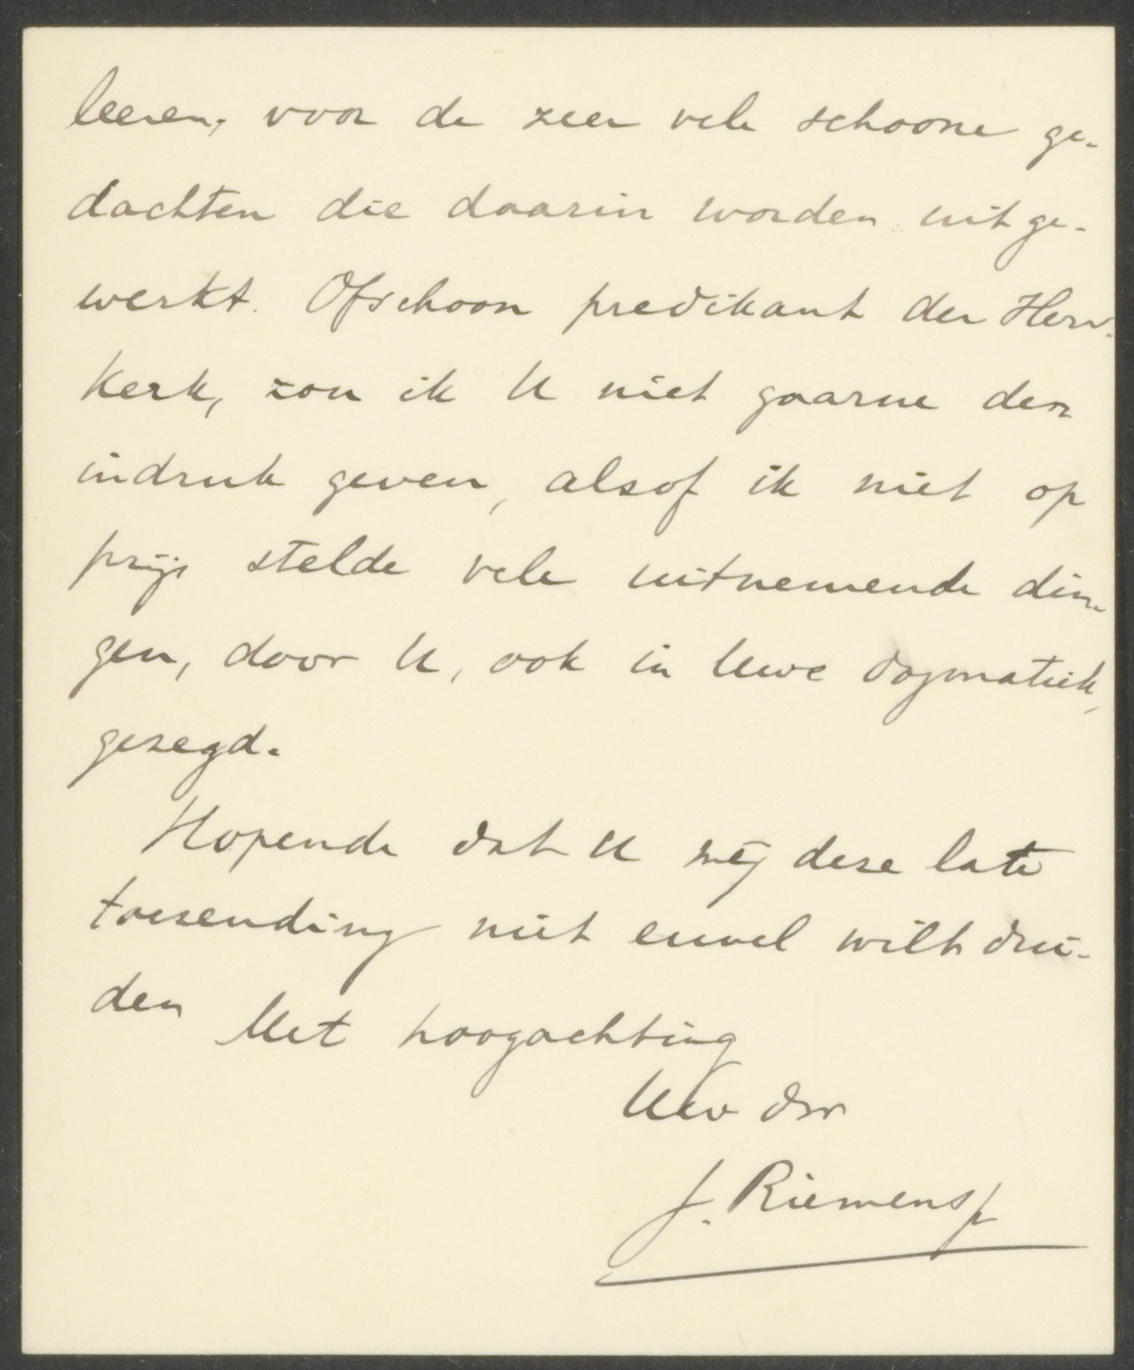 leeren, voor de zeer vele schoone ge-
dachten die daarin worden uitge-
werkt. Ofschoon predikant der Herv.
Kerk, zou ik U niet gaarne den
indruk geven, alsof ik niet op
prijs stelde vele uitnemende din-
gen, door U, ook in Uwe dogmatiek,
gezegd.
Hopende dat U mij deze late
toezending niet euvel wilt dui-
den Met hoogachting
Uw dw
J. Riemens jr